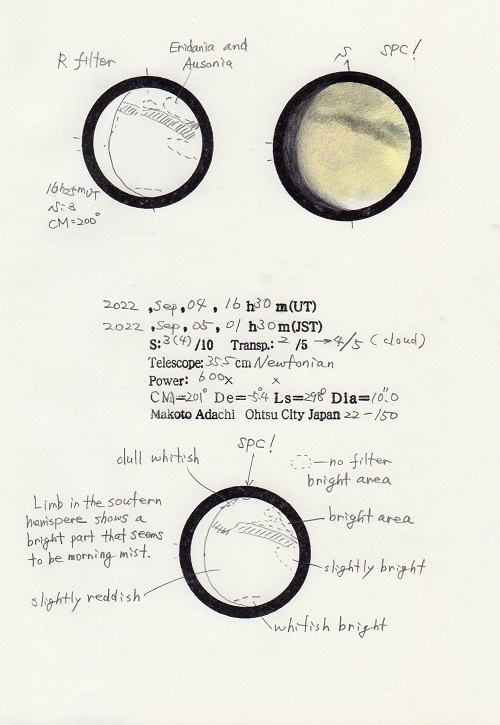 R filter
Eridania and
Ausonia
S
SPC!
16h25mUT
S:3
CM=200°
2022 ,Sep,04 , 16 h30 m(UT)
2022 ,Sep,05 ,01 h30 m(JST)
S:3(4)/10 Transp.: 2 /5 →4/5 (cloud)
Telescope:35.5 cm Newtonian
Power: 600x x
CM=201° De=-5.4° Ls=298° Dia=10".0
Makoto Adachi Ohtsu City Japan 22-150
SPC!
dull whitish
no filter
bright area
Limb in the soutern
hemispere shows a
bright part that seems
to be morning mist.
bright area
slightly bright
slightly reddish
whitish bright